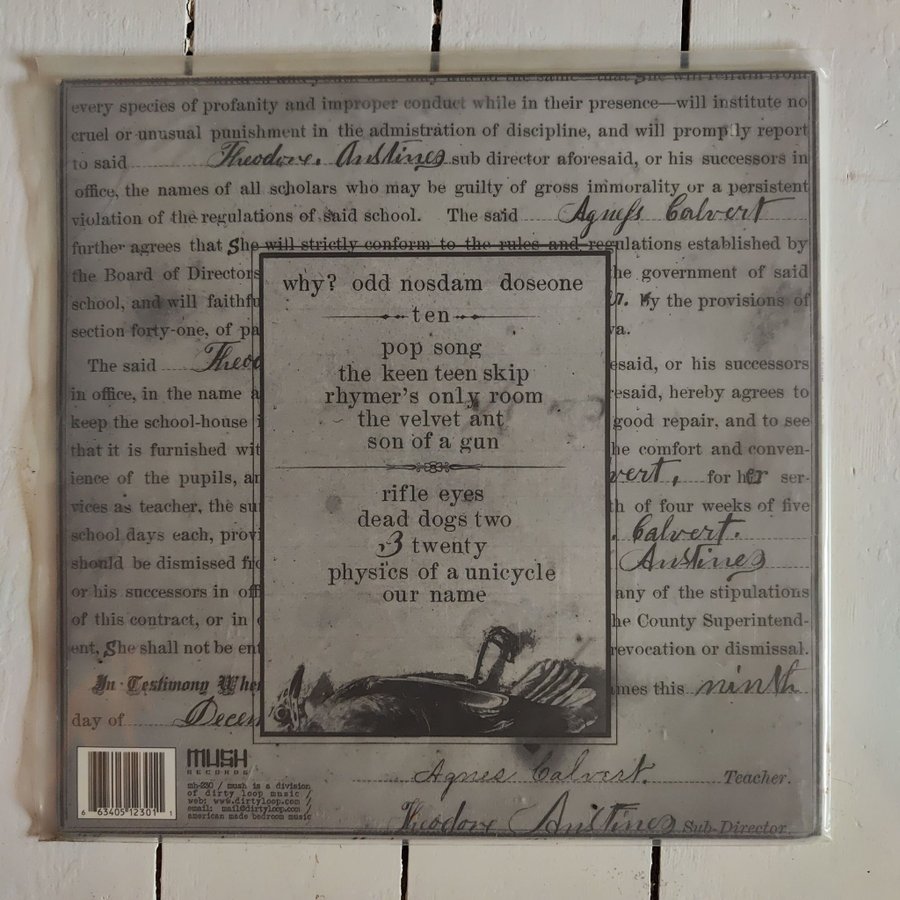 every species of profanity and improper conduct while in their presence—will institute no
cruel or unusual punishment in the admistration of discipline, and will promptly report
to said Theodore Anstines sub director aforesaid, or his successors in
office, the names of all scholars who may be guilty of gross immorality or a persistent
violation of the regulations of said school. The said Agness Calvert
further agrees that She will strictly conform to the rules and regulations established by
the Board of Directors
he government of said
school, and will faithfu
By the provisions of
section forty-one, of pa
va.
The said Theod
esaid, or his successors
in office, in the name a
esaid, hereby agrees to
keep the school-house i
good repair, and to see
that it is furnished wit
he comfort and conven-
ience of the pupils, an
vert, for her ser-
vices as teacher, the su
th of four weeks of five
school days each, provi
Calvert.
should be dismissed fro
Anstines
or his successors in off
any of the stipulations
of this contract, or in c
he County Superintend-
ent, She shall not be ent
revocation or dismissal.
In Testimony Whe
mes this ninth
day of Decem
why? odd nosdam doseone
ten
pop song
the keen teen skip
rhymer's only room
the velvet ant
son of a gun
rifle eyes
dead dogs two
3 twenty
physics of a unicycle
our name
Agnes Calvert. Teacher.
Theodore Anstines Sub-Director.
MUSH
RECORDS
mh-230 / mush is a division
of dirty loop music /
web: www.dirtyloop.com /
email: mail@dirtyloop.com /
american made bedroom music
6 63405 12301 1